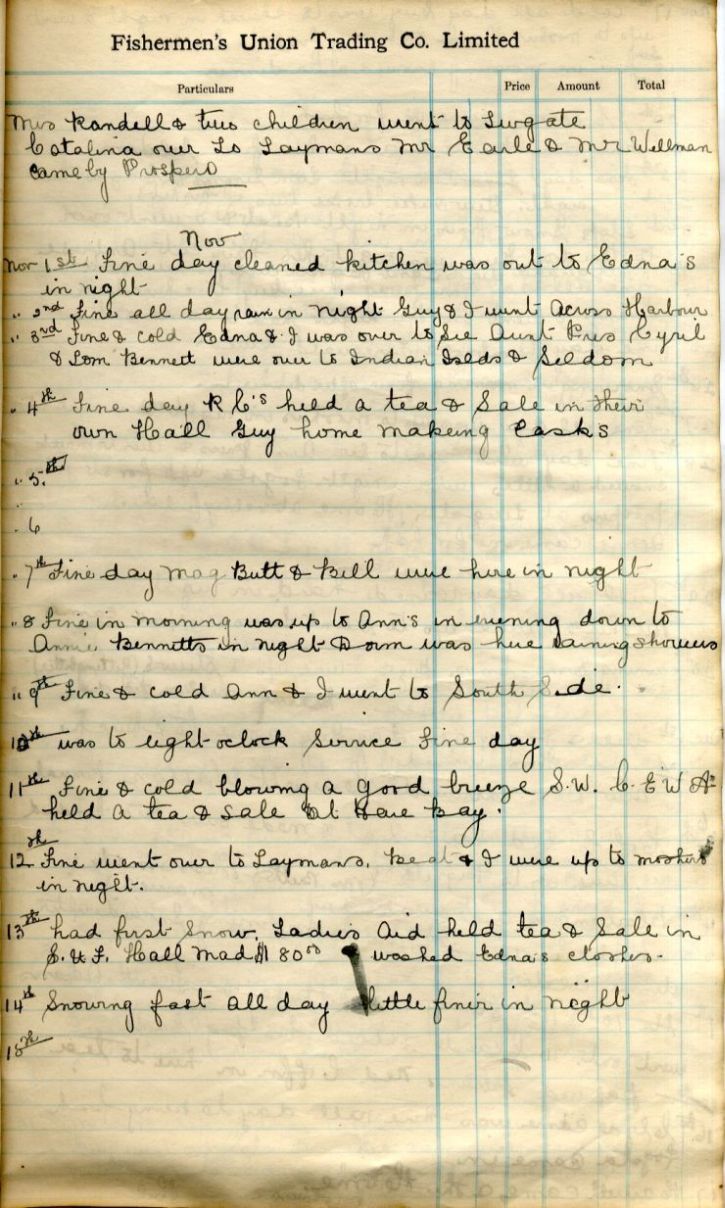 Fishermen's Union Trading Co. Limited
Particulars Price Amount Total
Mrs Randell & two children went to
Catalina over to Laymans Mr Earle & Mr Wellman
came by Prospero
Nov
Nov 1st Fine day cleaned kitchen was out to Edna's
in night
" 2nd Fine all day rain in night Guy & I went Across Harbour
" 3rd Fine & cold Edna & I was over to See Aunt Pris Cyril
& Tom Bennett were over to Indian Islds & Seldom
" 4th Fine day R C's held a tea & Sale in their
own Hall Guy home makeing Casks
" 5th
" 6
" 7th Fine day Mag Butt & Bill were here in night
" 8 Fine in morning was up to Ann's in evening down to
Annie Bennetts in night Dorm was here raining showers
" 9th Fine & cold Ann & I went to South Side.
10th was to eight oclock Service Fine day
11th Fine & cold blowing a good breeze S.W. C. E W A
held a tea & sale at Hare Bay.
12th Fine went over to Laymans. Beat & I were up to moshers
in night.
13th had first Snow. Ladies Aid held tea & Sale in
S. U. F. Hall Mad $180.00 I washed Edna's clothes.
14th Snowing fast all day little finer in night
15th